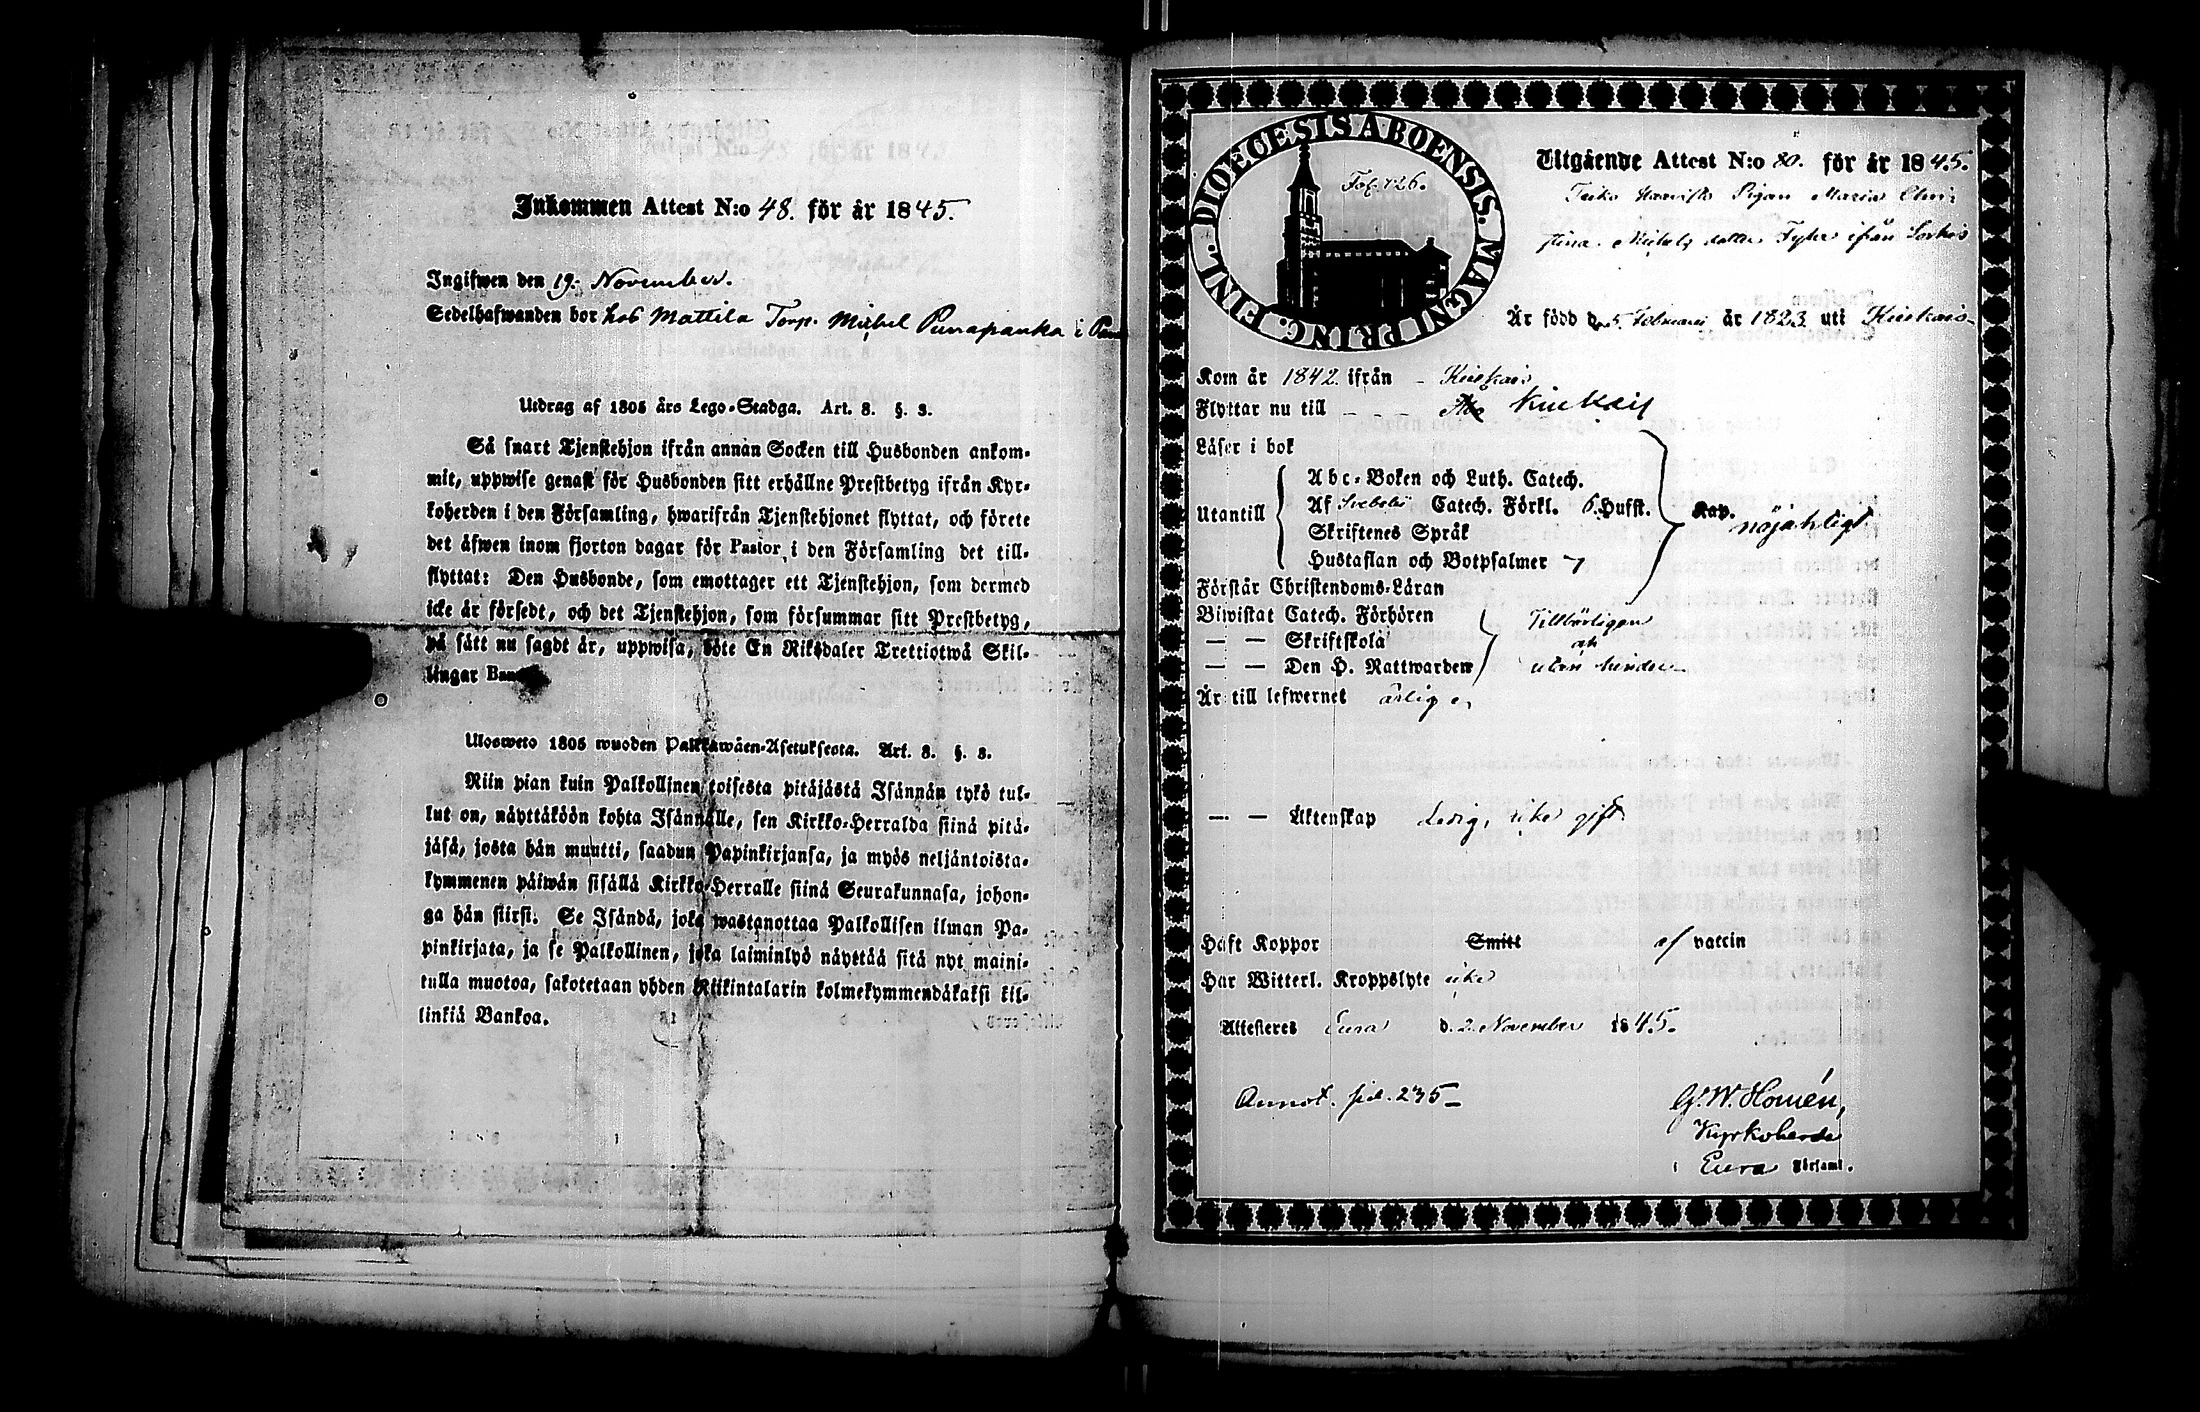 Inkommen Attest N:o 48. för år 1845.
Ingifwen den 19. November.
Sedelhafwanden bor hos Mattila Torp. Michel Punapauka i
Utdrag af 1805 års Lego-Stadga. Art. 8. §. 3.
Så snart Tjenstehjon ifrån annan Socken till Husbonden ankom-
mit, uppwise genast för Husbonden sitt erhållne Prestbetyg ifrån Kyr-
koherden i den Församling, hwarifrån Tjenstehjonet flyttat, och förete
det äfwen inom fjorton dagar för Pastor i den Församling det till-
flyttat: Den Husbonde, som emottager ett Tjenstehjon, som dermed
icke är försedt, och det Tjenstehjon, som försummar sitt Prestbetyg,
på sätt nu sagdt är, uppwisa, böte En Riksdaler Trettiotwå Skil-
lingar
Ulosweto 1805 wuoden Palkkawäen-Asetuksesta. Art. 8. §. 3.
Niin pian kuin Palkollinen toisesta pitäjästä Isännän tykö tul-
lut on, näyttäköön kohta Isännälle, sen Kirkko-Herralda siinä pitä-
jäsä, josta hän muutti, saadun Papinkirjansa, ja myös neljäntoista-
kymmenen päiwän sisällä Kirkko-Herralle siinä Seurakunnasa, johon-
ga hän siirsi. Se Isändä, joka wastanottaa Palkollisen ilman Pa-
pinkirjata, ja se Palkollinen, joka laiminlyö näyttää sitä nyt maini-
tulla muotoa, sakotetaan yhden Riikintalarin kolmekymmendäkaksi kil-
linkiä Bankoa.
FINL. DIOECESIS ABOENSIS. MAGNI PRINC.
Fol. 726.
Utgående Attest N:o 80. för år 1845.
Pigan Maria Chri-
stina Michels dotter ifrån
Är född d. 5 Februari år 1823 uti Kiukais
Kom år 1842. ifrån - Kiukais
Flyttar nu till - - - Kiukais
Läser i bok
Utantill
Abc-Boken och Luth. Catech.
Af Svebelii Catech. Förkl. 6. Hufst.
Skriftenes Språk
Hustaflan och Botpsalmer
Kap. nöjaktligt
Förstår Christendoms-Läran
Biwistat Catech. Förhören
— — Skriftskola
— — Den H. Nattwarden
Tillbörligen
och
utan hinder
Är till lefwernet ärlig
— — Äktenskap Ledig, icke gift
Haft Koppor Smitt af vaccin
Har Witterl. Kroppslyte icke
Attesteres Eura d. 2. November 1845.
Annot. pid. 235
G. W. Homén,
Kyrkoherde
i Eura Församl.